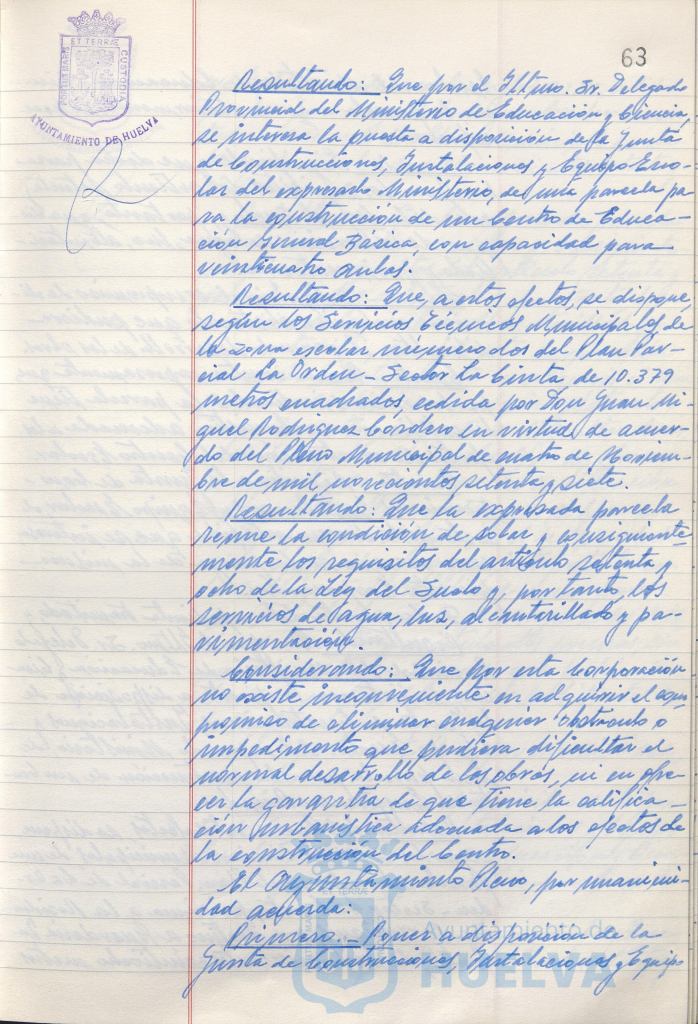 63
PORTUS MARIS
ET TERRÆ
CUSTODIA
AYUNTAMIENTO DE HUELVA
Resultando: Que por el Iltmo. Sr. Delegado
Provincial del Ministerio de Educación y Ciencia,
se interesa la puesta a disposición de la Junta
de Construcciones, Instalaciones y Equipo Esco-
lar del expresado Ministerio, de una parcela pa-
ra la construcción de un Centro de Educa-
ción General Básica, con capacidad para
veinticuatro aulas.
Resultando: Que, a estos efectos, se dispone,
según los Servicios Técnicos Municipales de
la zona escolar número dos del Plan Par-
cial La Orden - Sector La Cinta de 10.379
metros cuadrados, cedida por Don Juan Mi-
guel Rodriguez Cordero en virtud de acuer-
do del Pleno Municipal de cuatro de Noviem-
bre de mil novecientos setenta y siete.
Resultando: Que la expresada parcela
reune la condición de solar y consiguiente-
mente los requisitos del artículo setenta y
ocho de la Ley del Suelo y, por tanto, los
servicios de agua, luz, alcantarillado y pa-
vimentación.
Considerando: Que por esta Corporación
no existe inconveniente en adquirir el com-
promiso de eliminar cualquier obstáculo o
impedimento que pudiera dificultar el
normal desarrollo de las obras, ni en ofre-
cer la garantía de que tiene la califica-
ción urbanística adecuada a los efectos de
la construcción del Centro.
El Ayuntamiento Pleno, por unanimi-
dad acuerda:
Primero.- Poner a disposición de la
Junta de Construcciones, Instalaciones y Equipo
Ayuntamiento de
HUELVA